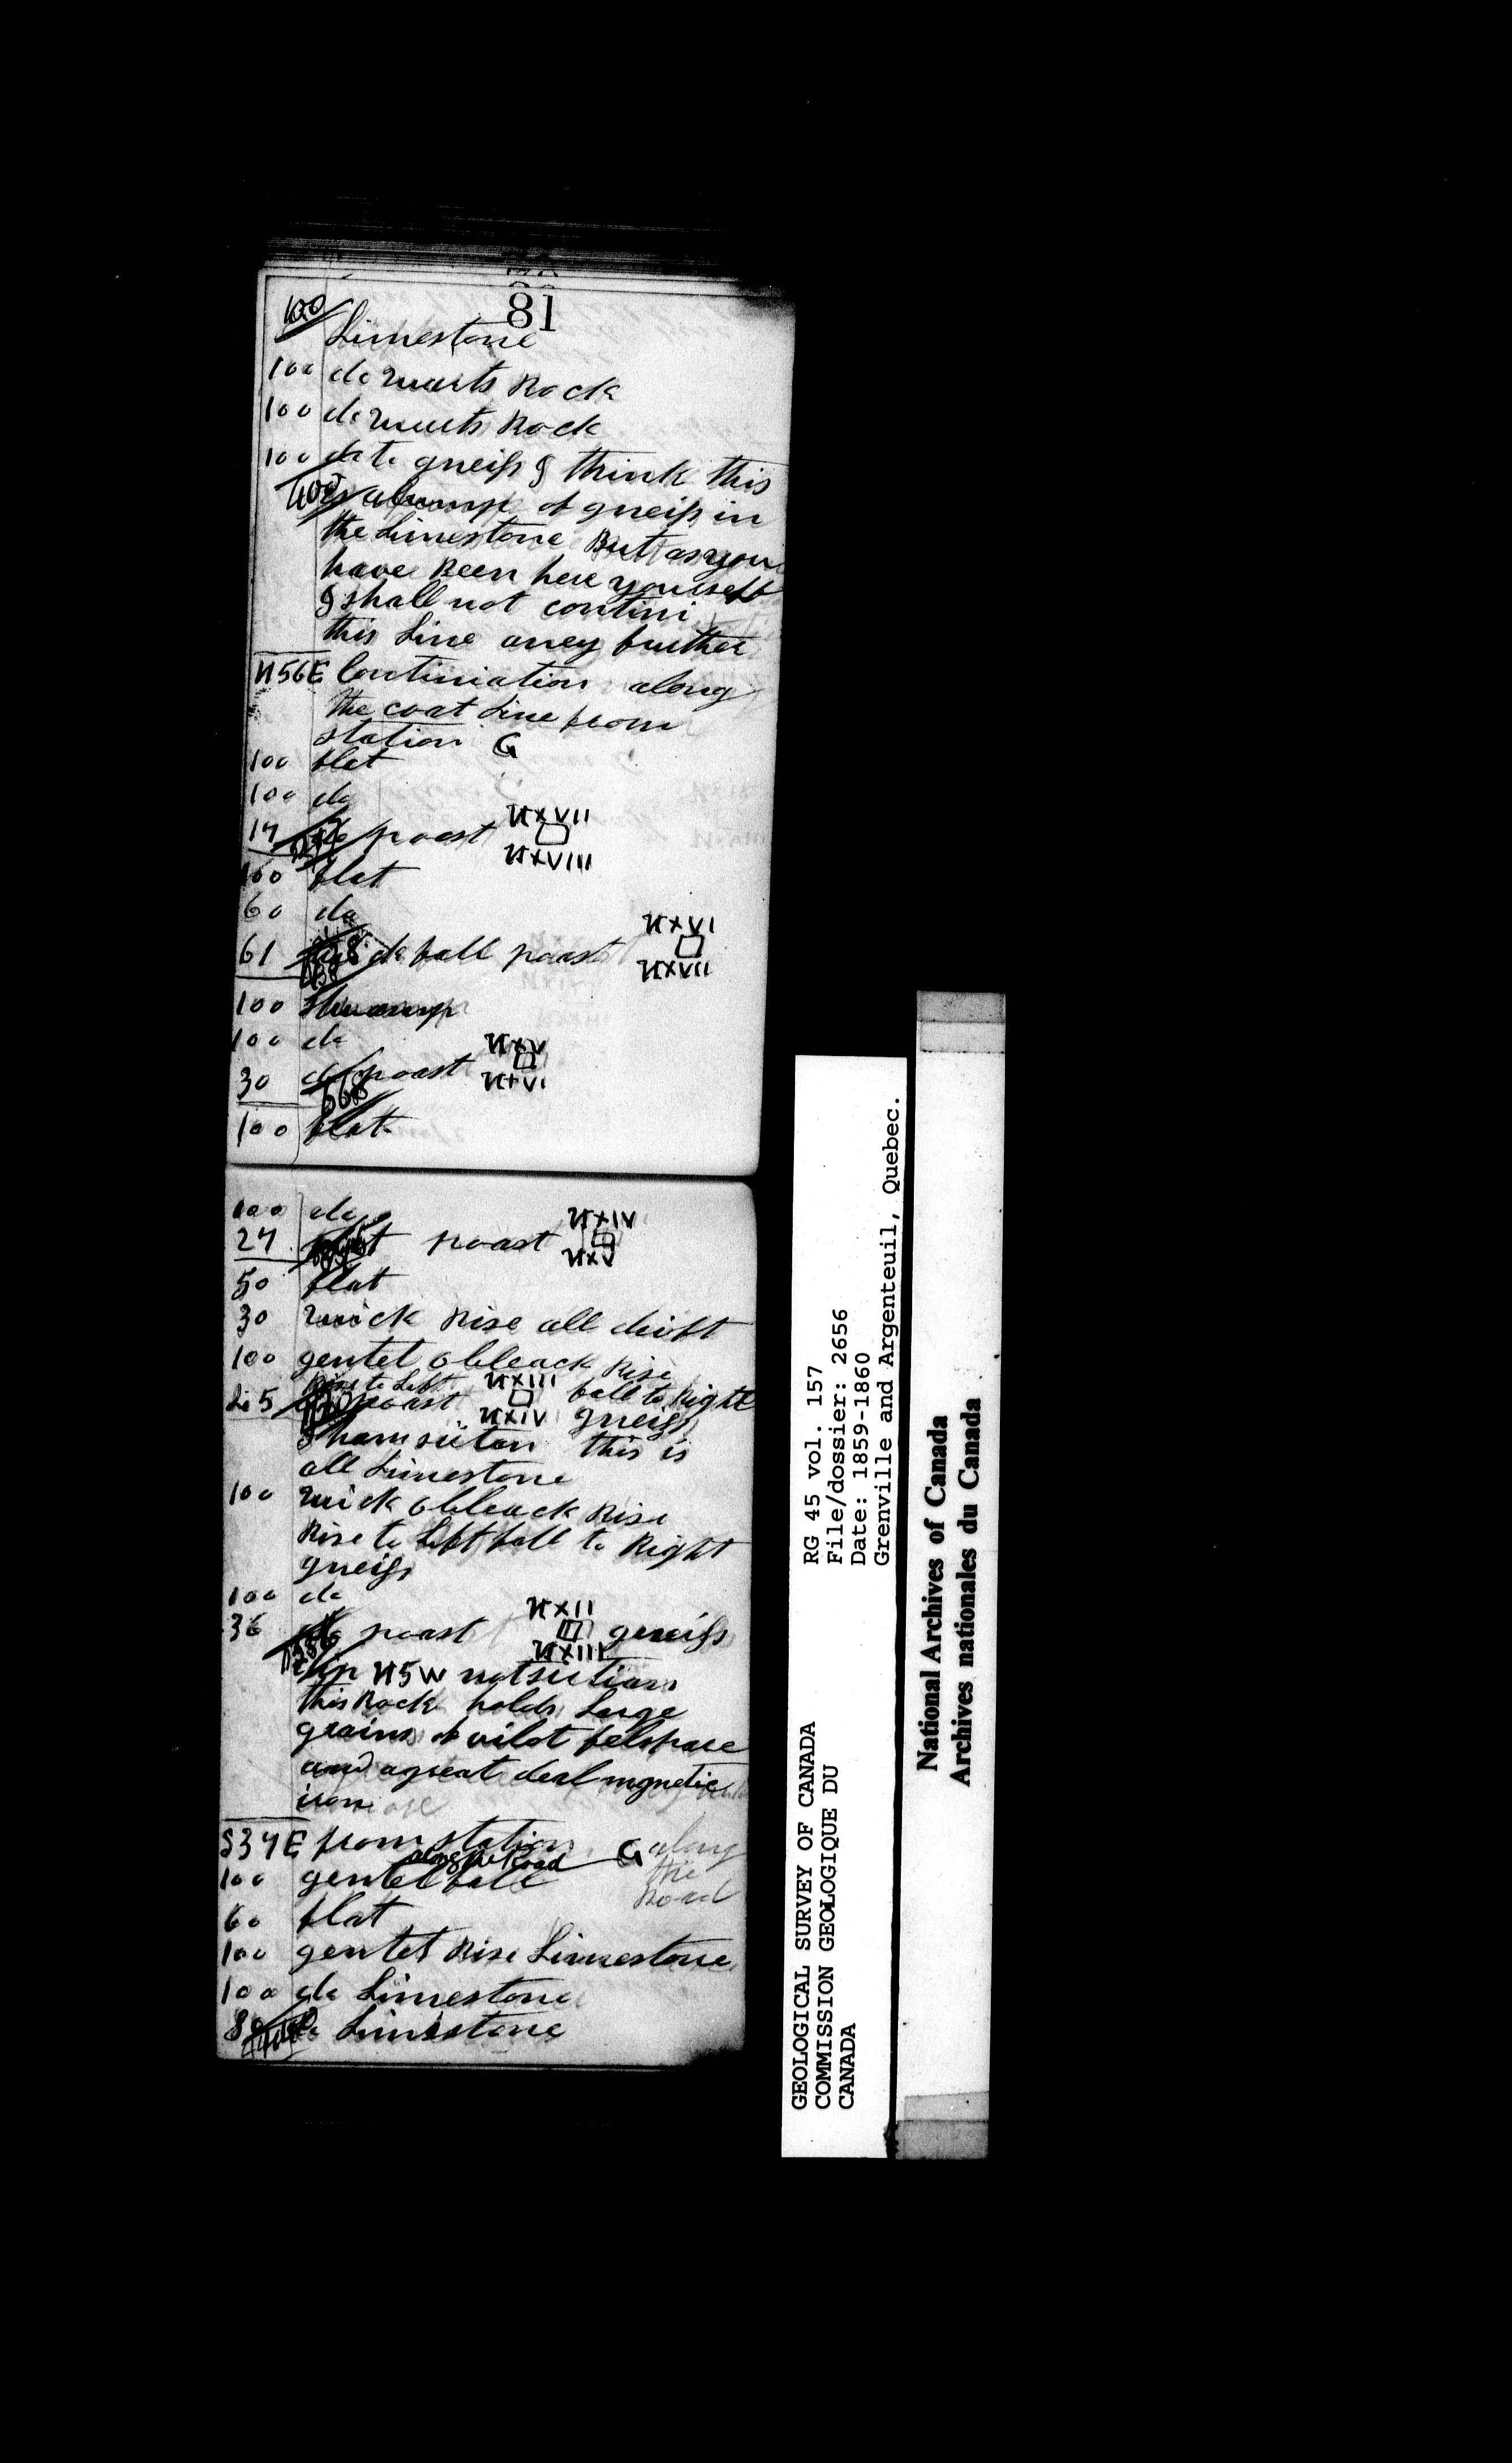 81
100
Limestone
100 do Quarts Rock
100 do Quarts Rock
100 do to gneiss I think this
400 is a bump of gneiss in
the Limestone But as you
have Been here yourself
I shall not contini
this Line aney further
N56E Continiation along
the coat Line from
station G
100 flat
100 do
NXVII
17 do poast
NXVIII
100 flat
60 do
NXVI
61 fall poast
NXVII
100 Swamp
100 do
NXV
30 do poast
NXVI
668
100 flat
100 do
NXIV
27 flat poast
NXV
50 flat
30 Quick Rise all drift
100 gentel obleack Rise
Rise to Left NXIII fall to Right
Li 5 poast NXIV gneiss
I ham siiton this is
all Limestone
100 Quick obleack Rise
Rise to Left fall to Right
gneiss
100 do
NXII
36 do poast gneiss
NXIII
dip N5W not sietian
this Rock holds Large
grains of vilot felspare
and a great deal mgnetic
iron
S34E from station G along
the
Road
along the Road
100 gentel fall
60 flat
100 gentel Rise Limestone
100 do Limestone
80 do Limestone
440
GEOLOGICAL SURVEY OF CANADA
COMMISSION GEOLOGIQUE DU
CANADA
RG 45 vol. 157
File/dossier: 2656
Date: 1859-1860
Grenville and Argenteuil, Quebec.
National Archives of Canada
Archives nationales du Canada